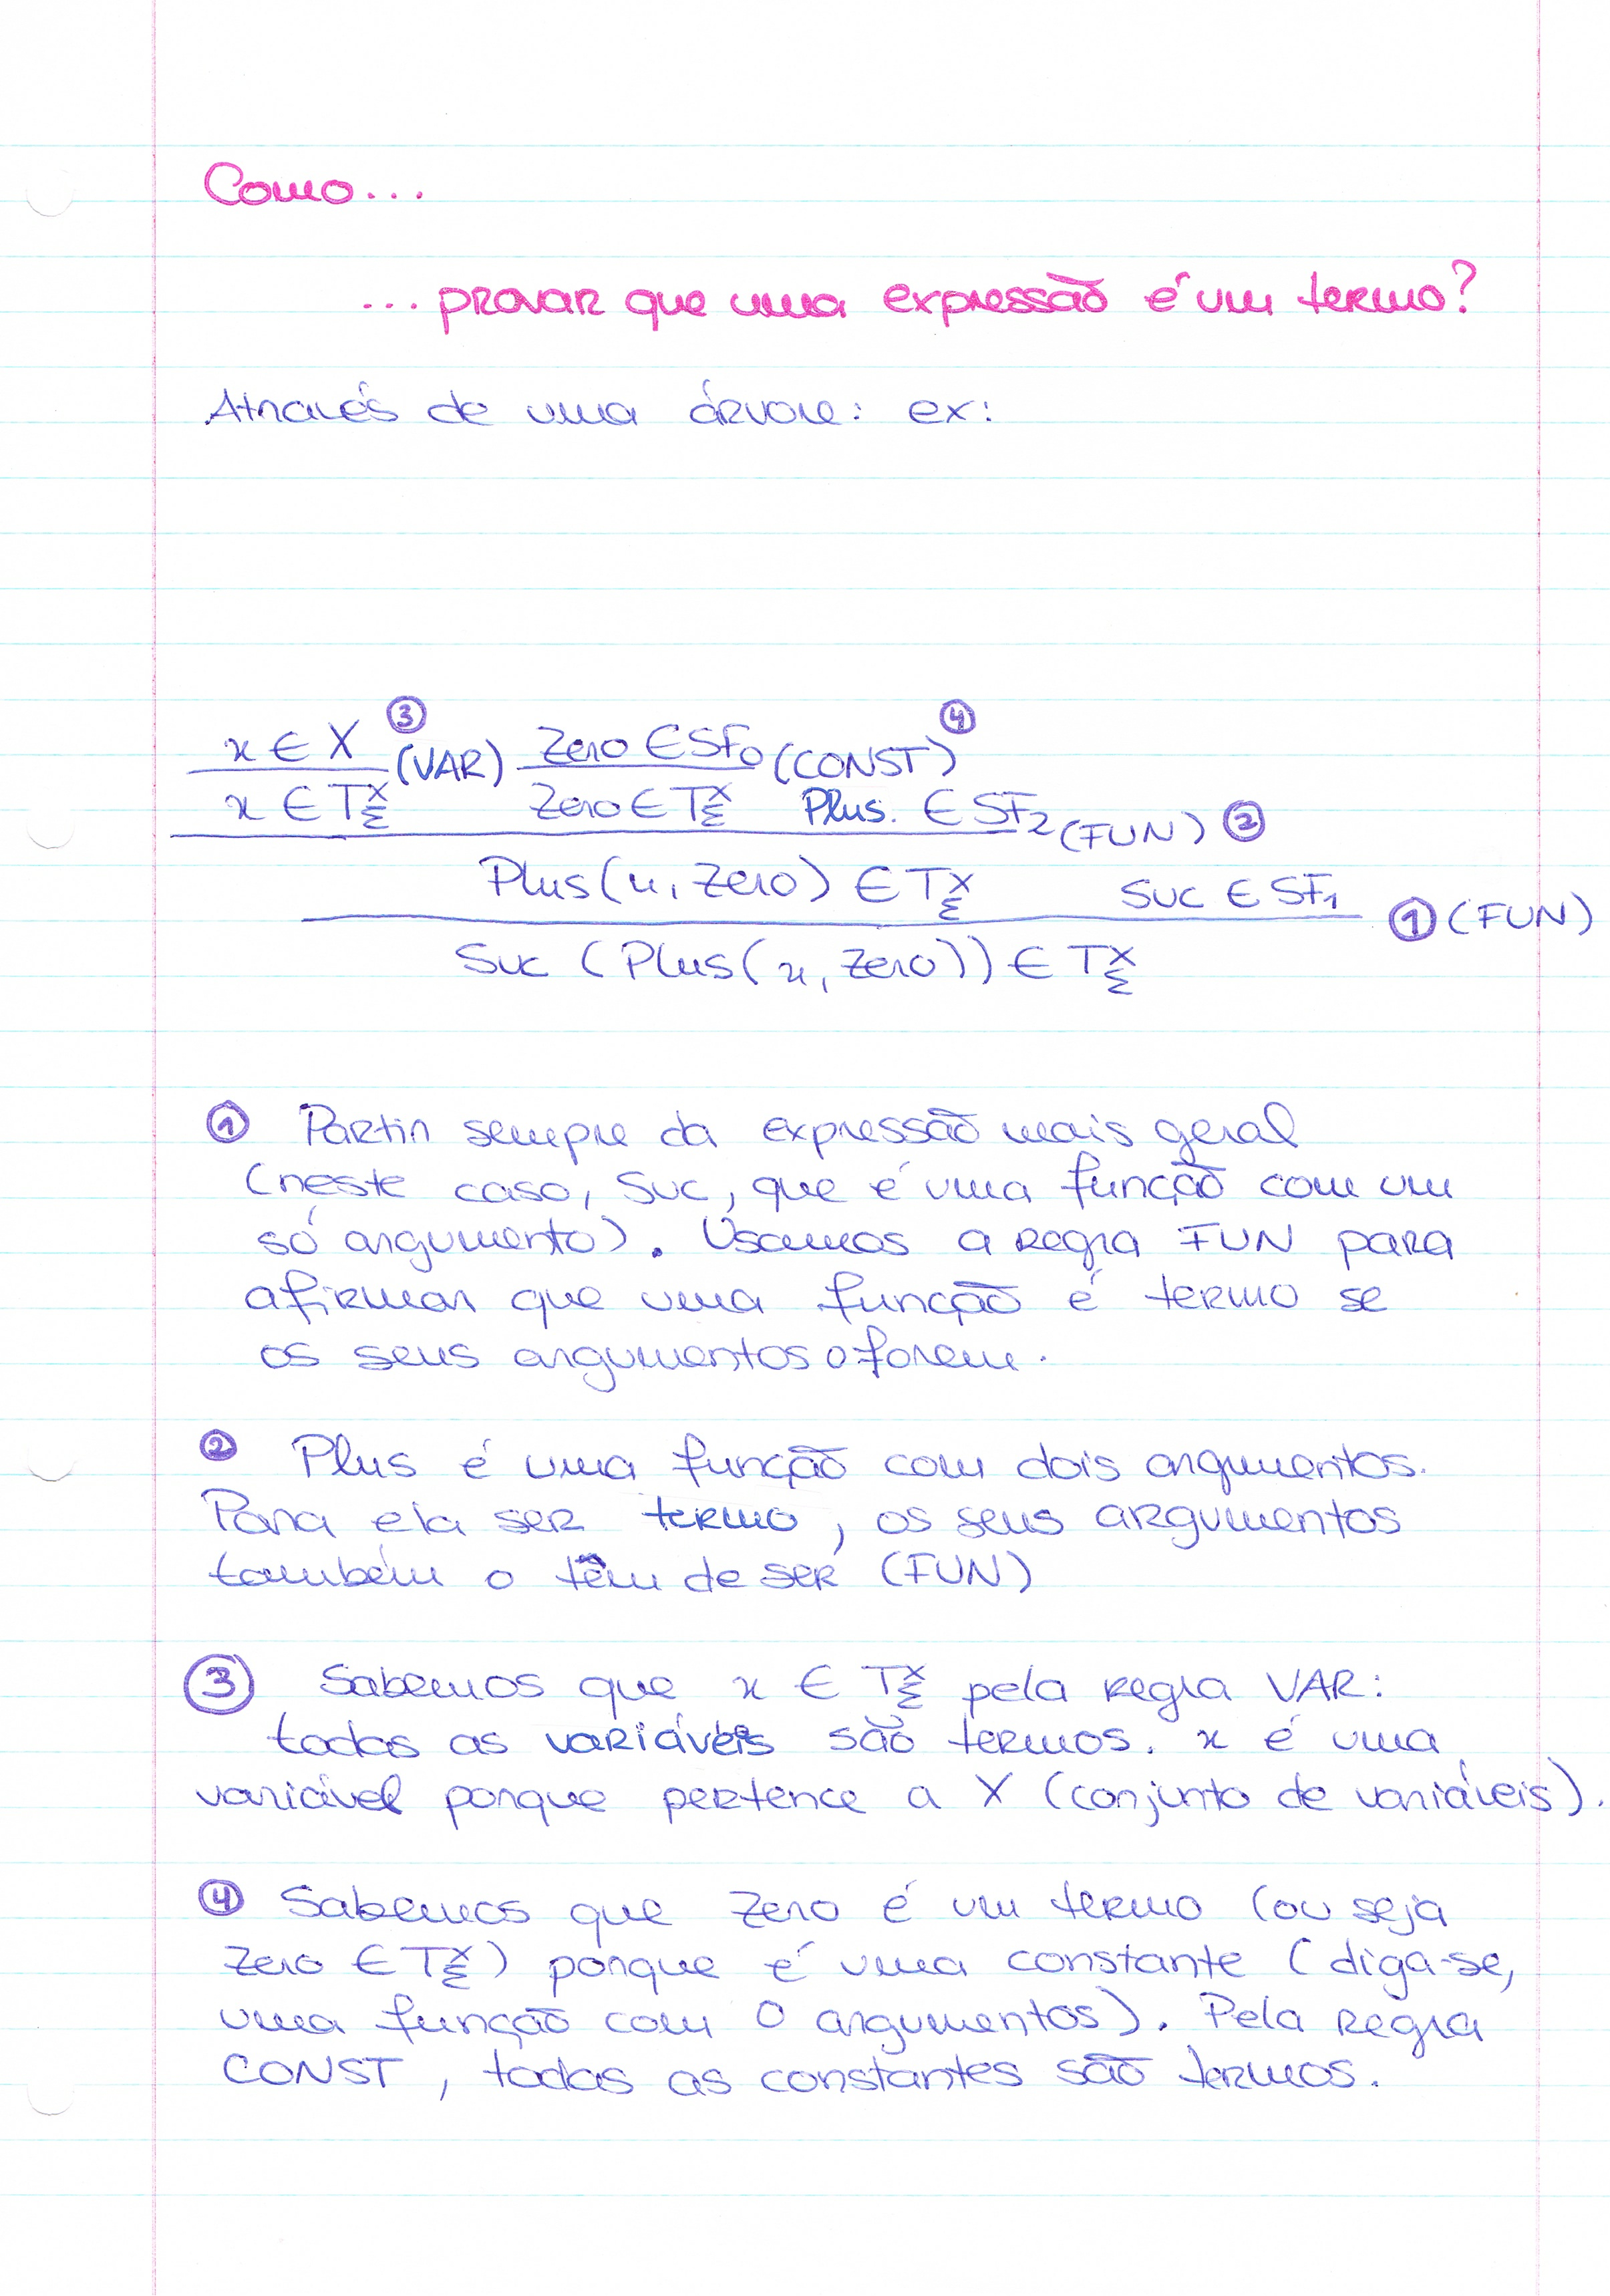 Como...
... provar que uma expressão é um termo?
Através de uma árvore: ex:
③ ④
x ∈ X (VAR) Zero ∈ SF₀ (CONST)
x ∈ T_Σ^X Zero ∈ T_Σ^X Plus. ∈ SF₂ (FUN) ②
Plus(x, Zero) ∈ T_Σ^X Suc ∈ SF₁ ① (FUN)
Suc (Plus(x, Zero)) ∈ T_Σ^X
① Partir sempre da expressão mais geral
(neste caso, Suc, que é uma função com um
só argumento). Usamos a regra FUN para
afirmar que uma função é termo se
os seus argumentos o forem.
② Plus é uma função com dois argumentos.
Para ela ser termo, os seus argumentos
também o têm de ser (FUN)
③ Sabemos que x ∈ T_Σ^X pela regra VAR:
todas as variáveis são termos. x é uma
variável porque pertence a X (conjunto de variáveis).
④ Sabemos que Zero é um termo (ou seja
Zero ∈ T_Σ^X) porque é uma constante (diga-se,
uma função com 0 argumentos). Pela regra
CONST, todas as constantes são termos.